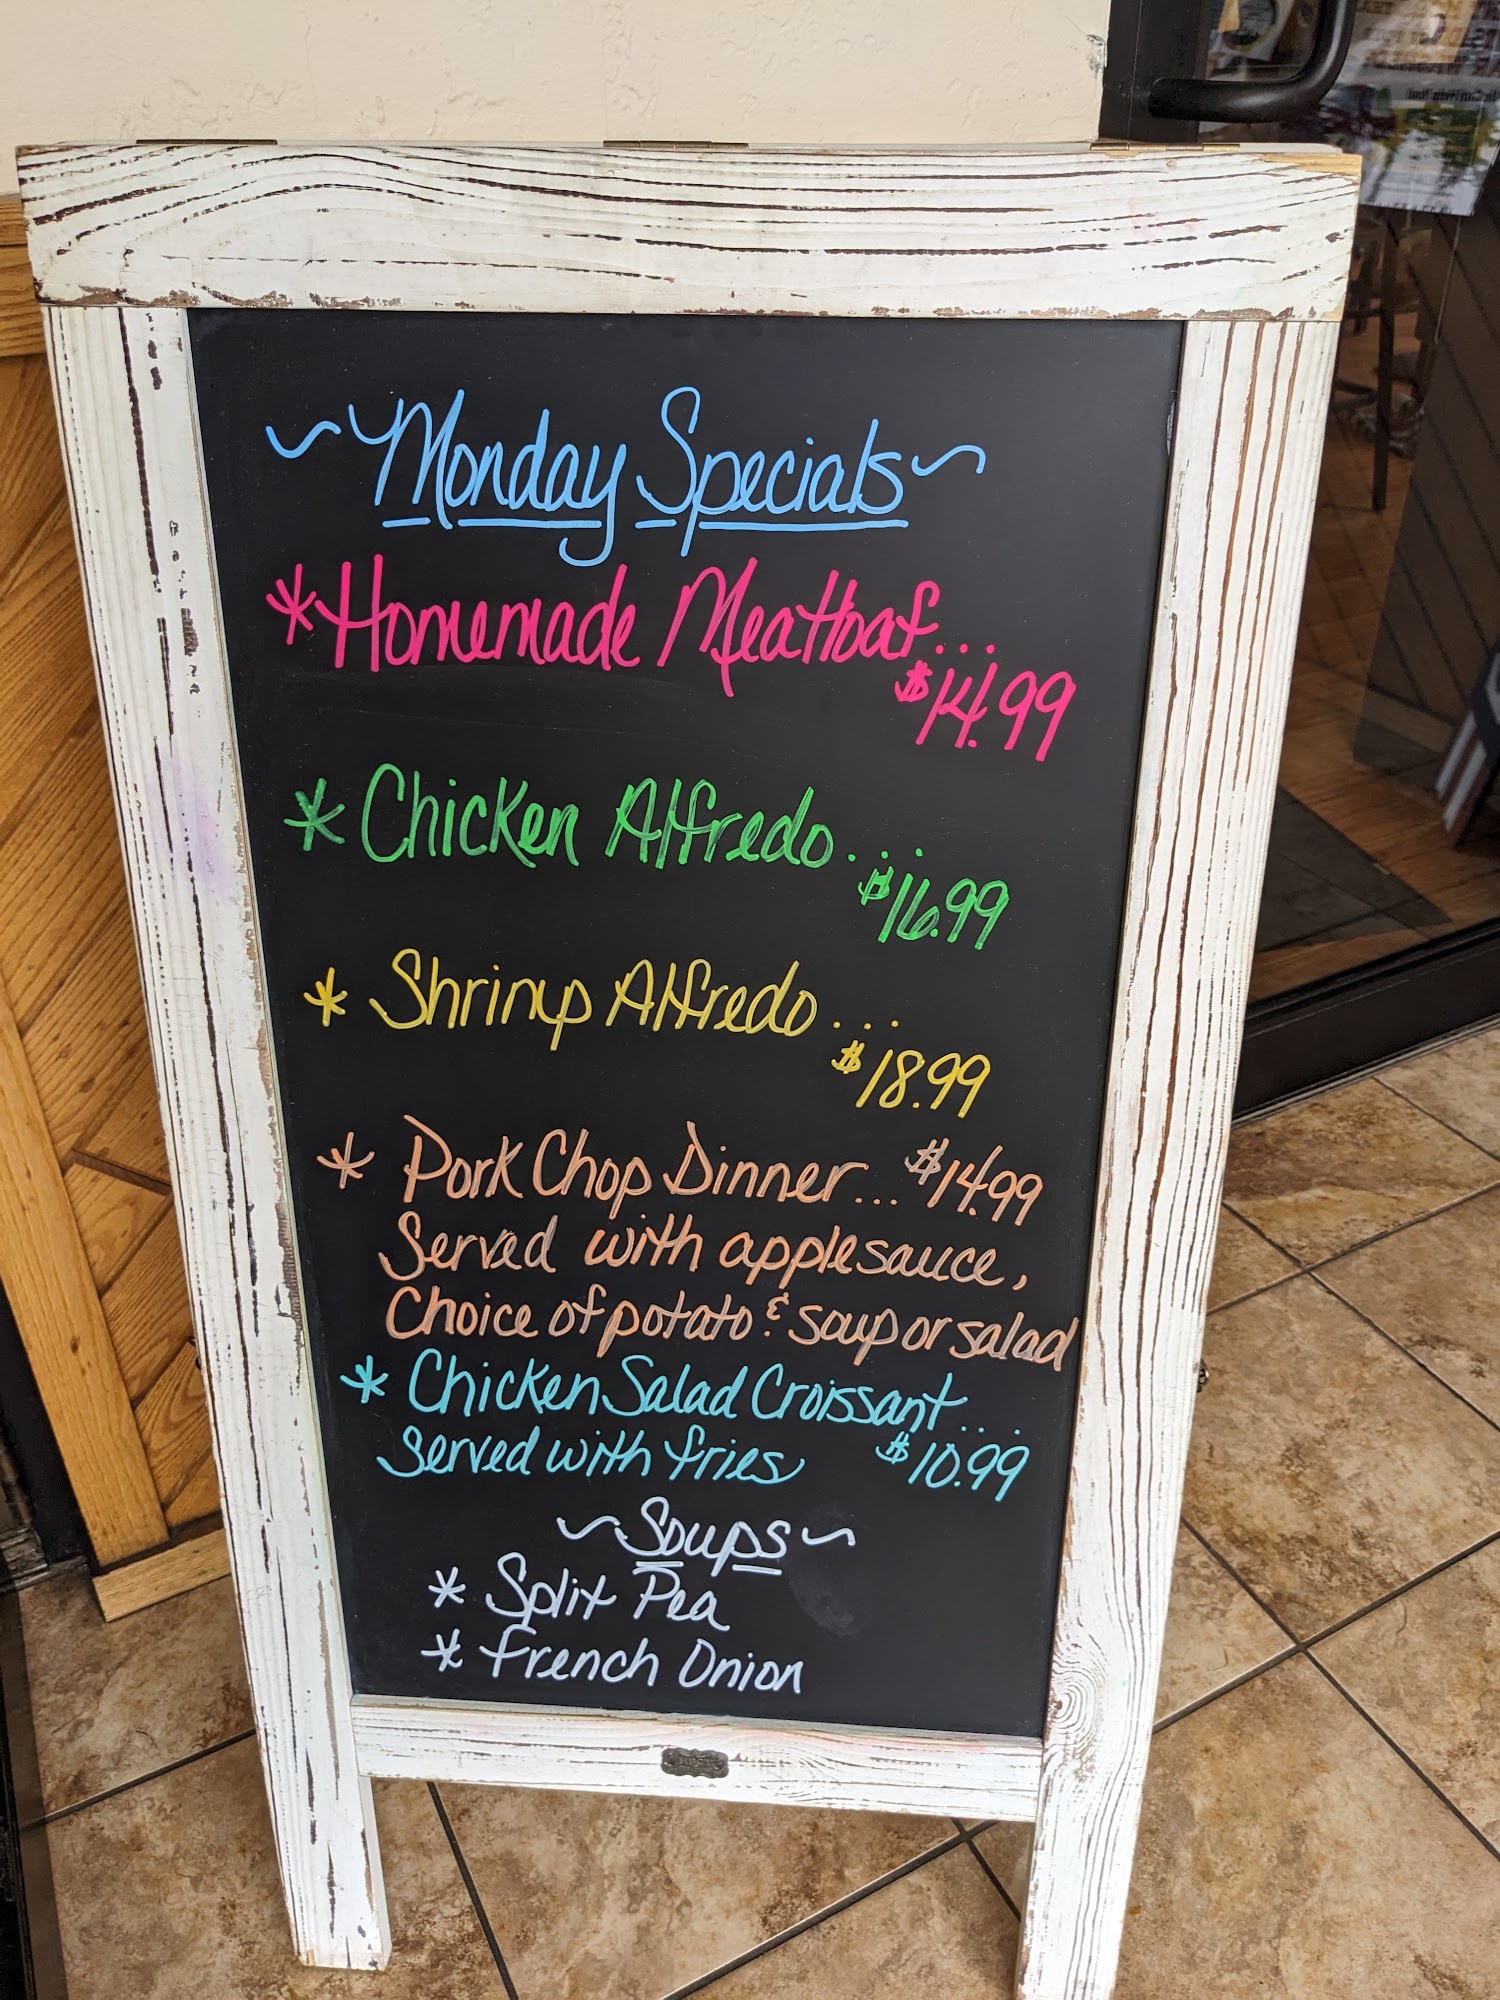 ~Monday Specials~
*Homemade Meatloaf...
$14.99
*Chicken Alfredo...
$16.99
*Shrimp Alfredo...
$18.99
*Pork Chop Dinner...$14.99
Served with applesauce,
Choice of potato & soup or salad
*Chicken Salad Croissant...
Served with fries $10.99
~Soups~
*Split Pea
*French Onion